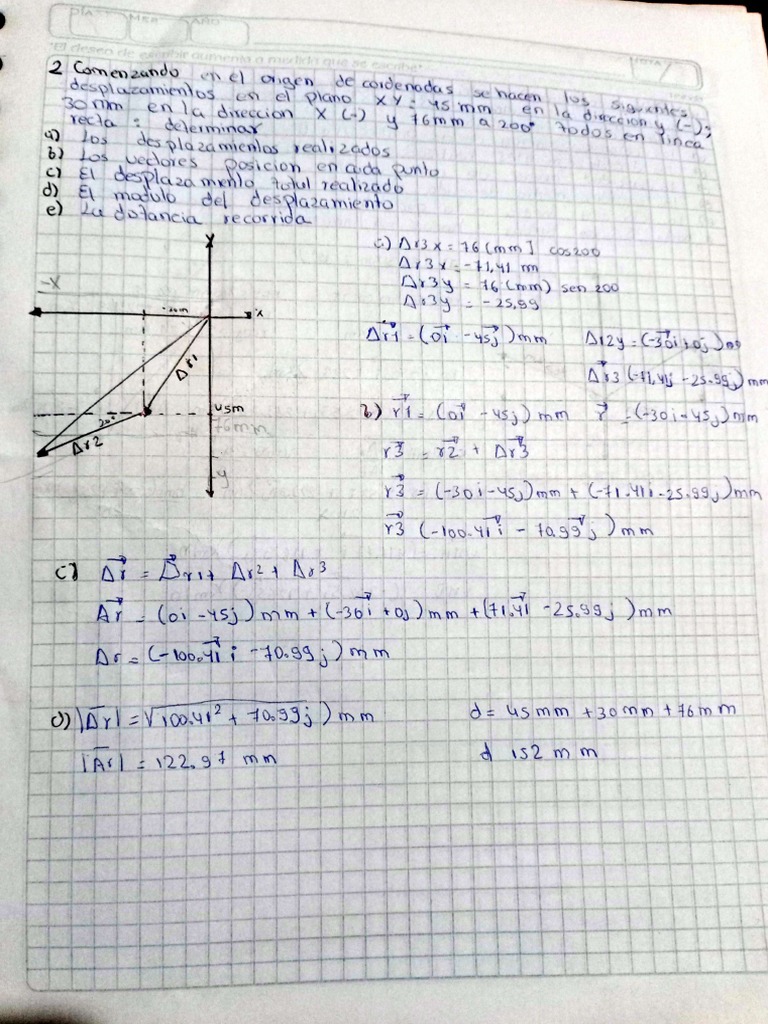 DÍA MES AÑO
"El deseo de escribir aumenta a medida que se escribe"
NOTA
2 Comenzando en el origen de cordenadas se hacen los siguientes
desplazamientos en el plano XY = 45 mm en la direccion y (-);
30 mm en la direccion X (-) y 76mm a 200° todos en linea
recta : determinar
a) Los desplazamientos realizados
b) Los vectores posicion en cada punto
c) El desplazamiento total realizado
d) El modulo del desplazamiento
e) La distancia recorrida
y
-X
x
Δr1
20°
Δr2
45m
76mm
-y
Δr3x = 76 (mm] cos200
Δr3x = -71,41 m
Δr3y = 76 (mm) sen 200
Δr3y = -25,99
Δr1 = (0i - 45j) mm Δr2y = (-30i + 0j)
Δr3 (-71,41i - 25.99j) mm
b) r1 = (0i - 45j) mm r = (-30i - 45j) mm
r3 = r2 + Δr3
r3 = (-30i - 45j) mm + (-71.41i - 25.99j) mm
r3 (-100.41i - 70.99j) mm
c) Δr = Δr1 + Δr2 + Δr3
Δr = (0i - 45j) mm + (-30i + 0j) mm + (71.41 - 25.99j) mm
Δr = (-100.41 i - 70.99j) mm
d) |Δr| = √100.41² + 70.99j) mm d = 45 mm + 30 mm + 76 mm
|Δr| = 122.97 mm d 152 mm